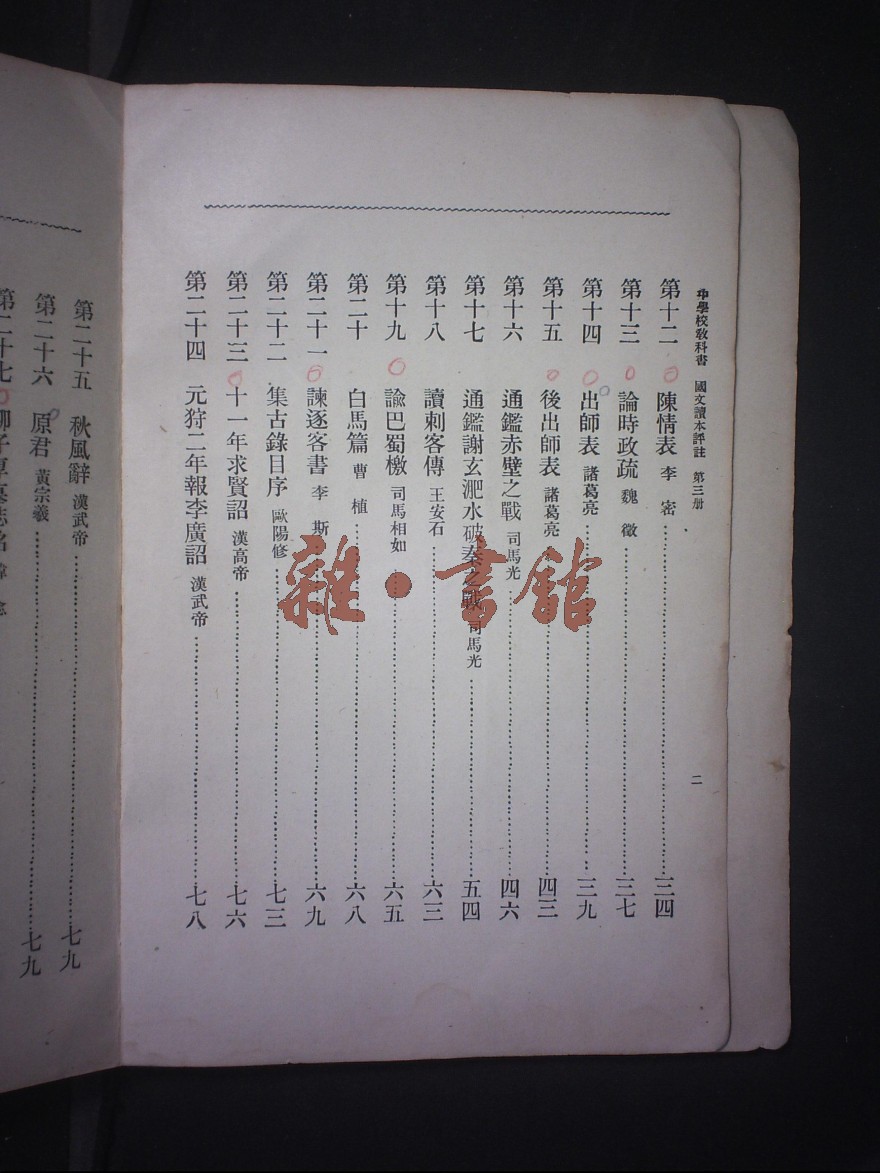 中學校教科書 國文讀本評註 第三册
二
第十二 陳情表 李密 三四
第十三 論時政疏 魏徵 三七
第十四 出師表 諸葛亮 三九
第十五 後出師表 諸葛亮 四三
第十六 通鑑赤壁之戰 司馬光 四六
第十七 通鑑謝玄淝水破秦之戰 司馬光 五四
第十八 讀刺客傳 王安石 六三
第十九 諭巴蜀檄 司馬相如 六五
第二十 白馬篇 曹植 六八
第二十一 諫逐客書 李斯 六九
第二十二 集古錄目序 歐陽修 七三
第二十三 十一年求賢詔 漢高帝 七六
第二十四 元狩二年報李廣詔 漢武帝 七八
第二十五 秋風辭 漢武帝 七九
第二十六 原君 黃宗羲 七九
第二十七 柳子厚墓誌名 韓愈
雜·書館